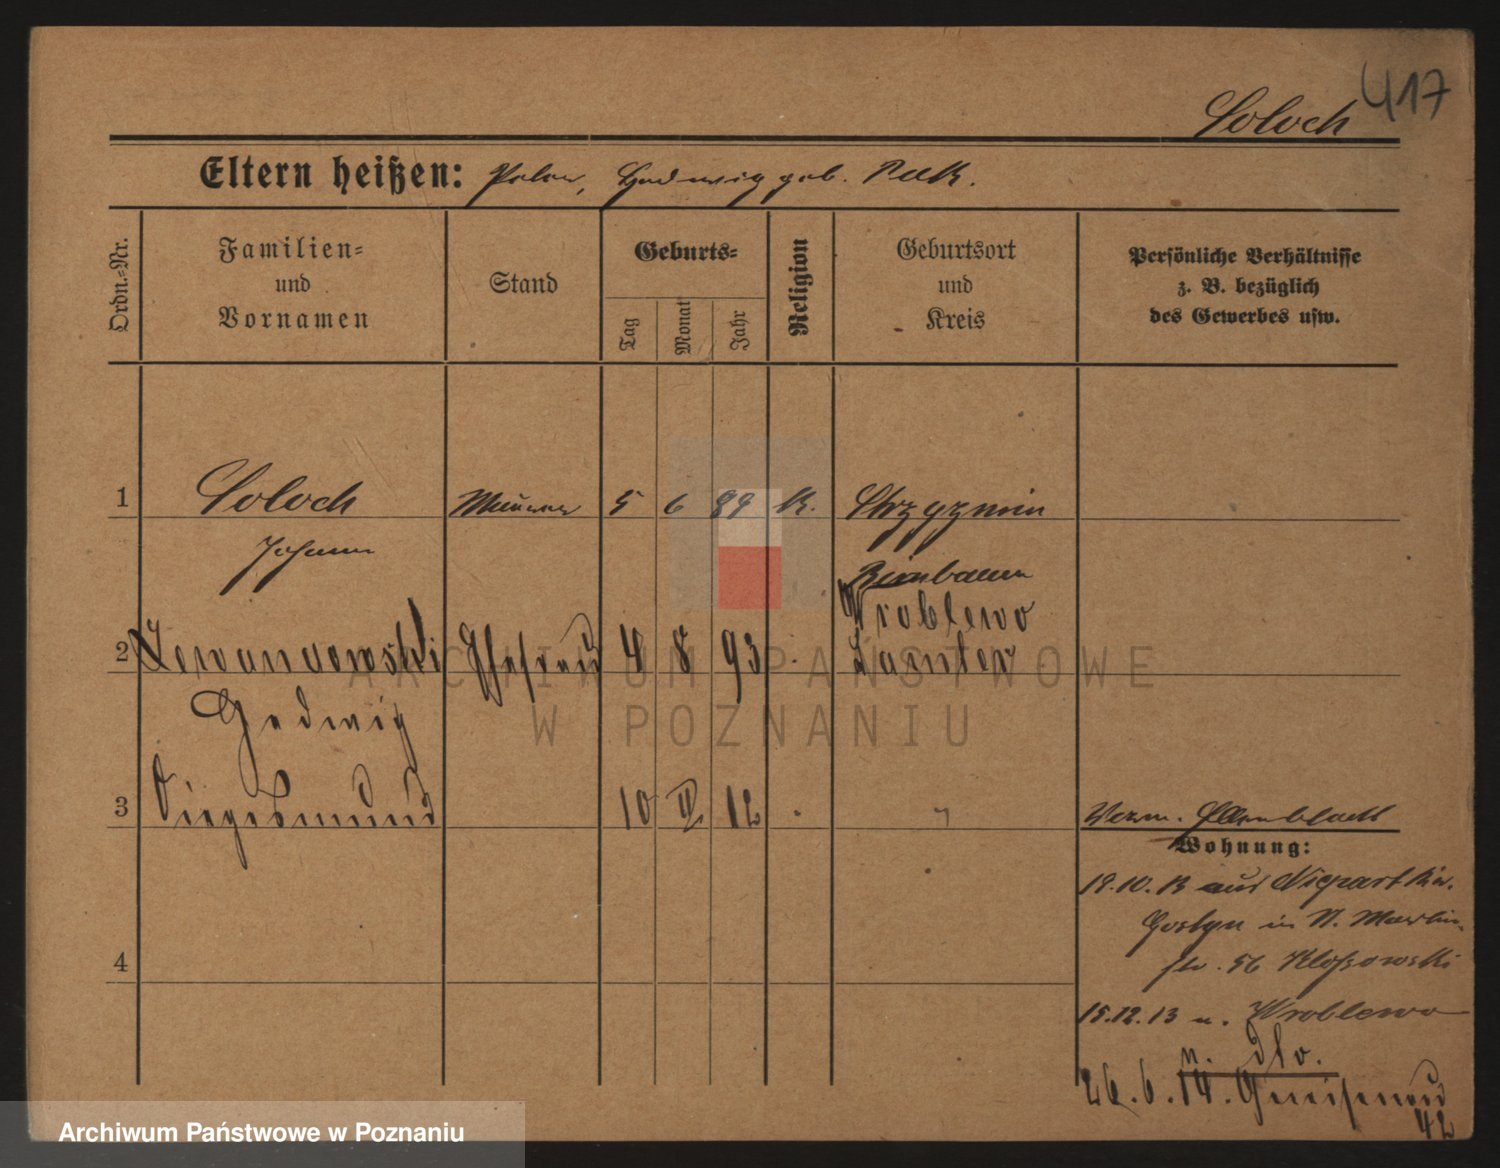 417
Soloch
Eltern heißen: Peter, Hedwig geb.
Ordn.-Nr.
Familien-
und
Vornamen
Stand
Geburts-
Tag
Monat
Jahr
Religion
Geburtsort
und
Kreis
Persönliche Verhältnisse
z. B. bezüglich
des Gewerbes usw.
1 Soloch Maurer 5 6 89 K.
Johann
Birnbaum
Wroblewo
2 Lewandowski Ehefrau 4 8 93 Samter
Hedwig
3 Siegesmund 10 II 12 "
Verm.
Wohnung:
19.10.13 aus Niepart Kr.
Gostyn in N. Martin
str. 56 Klossowski
4
15.12.13 n. Wroblewo
n. dto.
26.6.14. Gneisenau
42
ARCHIWUM PAŃSTWOWE
W POZNANIU
Archiwum Państwowe w Poznaniu